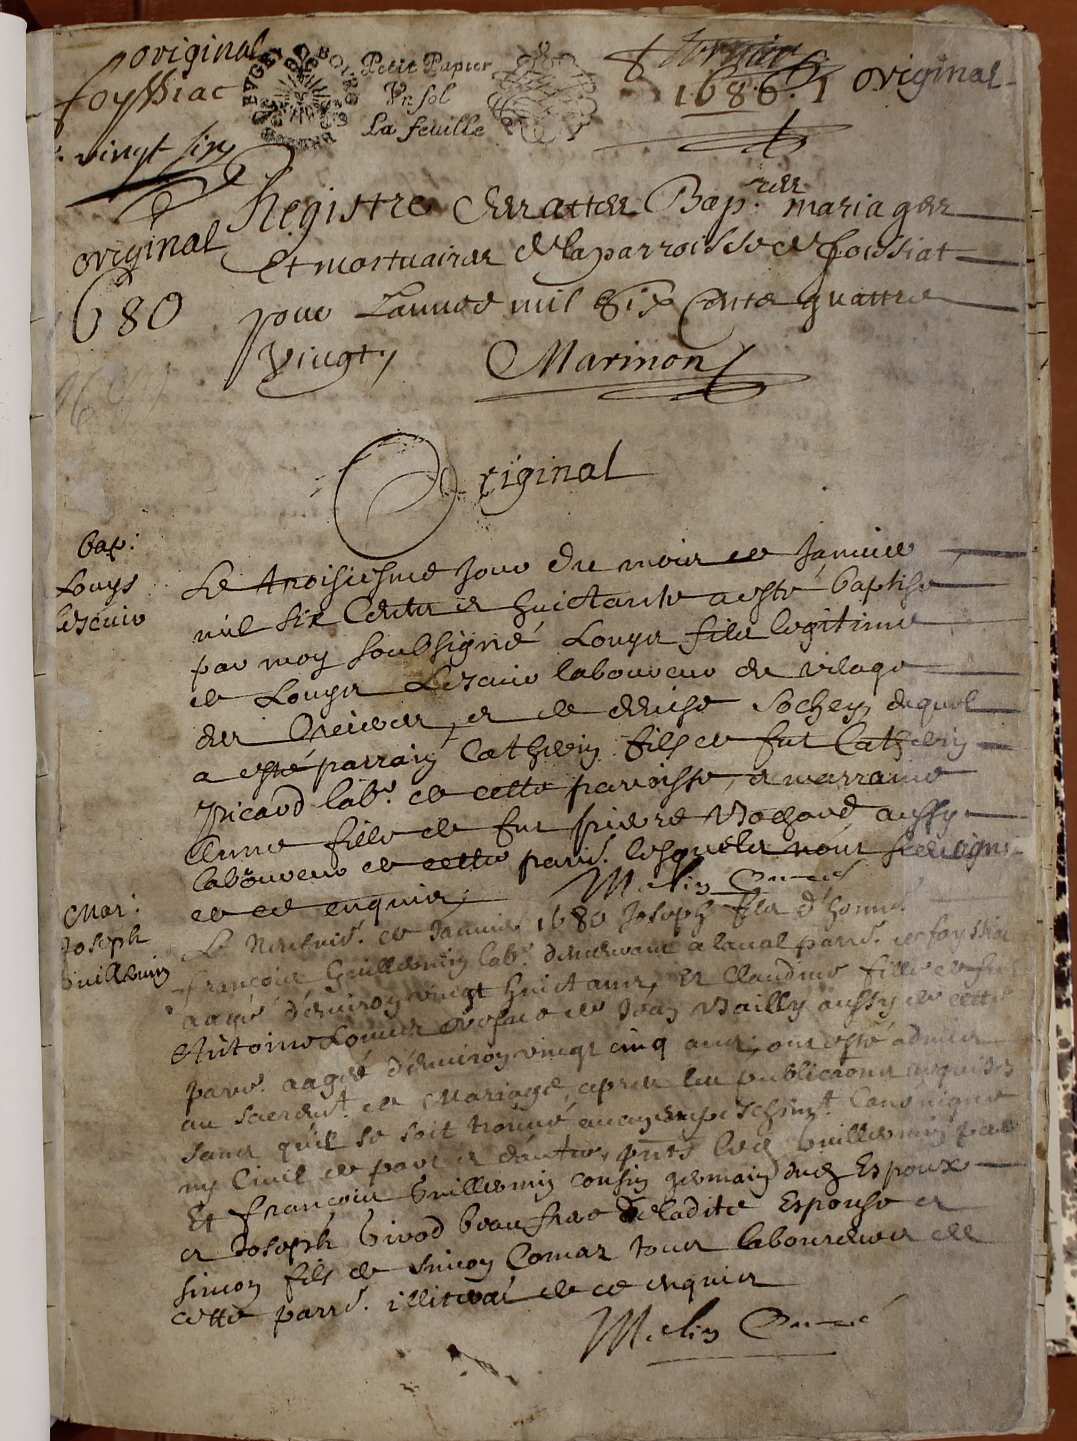 original
foyssiac
vingt six
BVGEY BOVRG
Petit Papier
Vn sol
La feuille
1686. 1 original
Registre des actes Bap.res mariages
Et mortuaires de la parroisse de foissiat
pour Lannee mil Six Cents quattre
Vingt
Marinon
original
680
Original
bap:
Louys
Lescuie
Le troisiesme jour du mois de Janvier
mil six Cents et huictante a esté baptisé
par moy soubsigné Louys fils legitime
de Louys Lescuie laboureur du vilage
des et de denise Sochey, duquel
a esté parrain Cathelin fils de fut Cathelin
Picard lab.r de cette paroisse, et marraine
Anne fille de fut pierre Bochard aussy
laboureur de cette parois. lesquels nont signé
de ce enquis.
Melin Curé
Mar:
Joseph
Guillemin
Le de Janvier 1680 Joseph fils d'honn.
françois Guillemin lab.r demeurant a laval parois. de foyssia
aagé d'environ vingt huict ans, et Claudine fille de fut
Antoine vefve de Jean Bailly aussy de cette
parois. aagée d'environ vingt cinq ans, ont esté admis
au sacrem.t de Mariage, apres les publications requises
sans qu'il se soit trouvé aucun empeschem.t Canonique
ny Civil de part et d'autre, pnts led. Guillemin pere
Et françois Guillemin cousin germain dud. Espoux
et Joseph Girod beau frere de ladite Espouse et
simon fils de simon Comas tous laboureurs de
cette parrois. illiteraé de ce enquis
Melin Curé